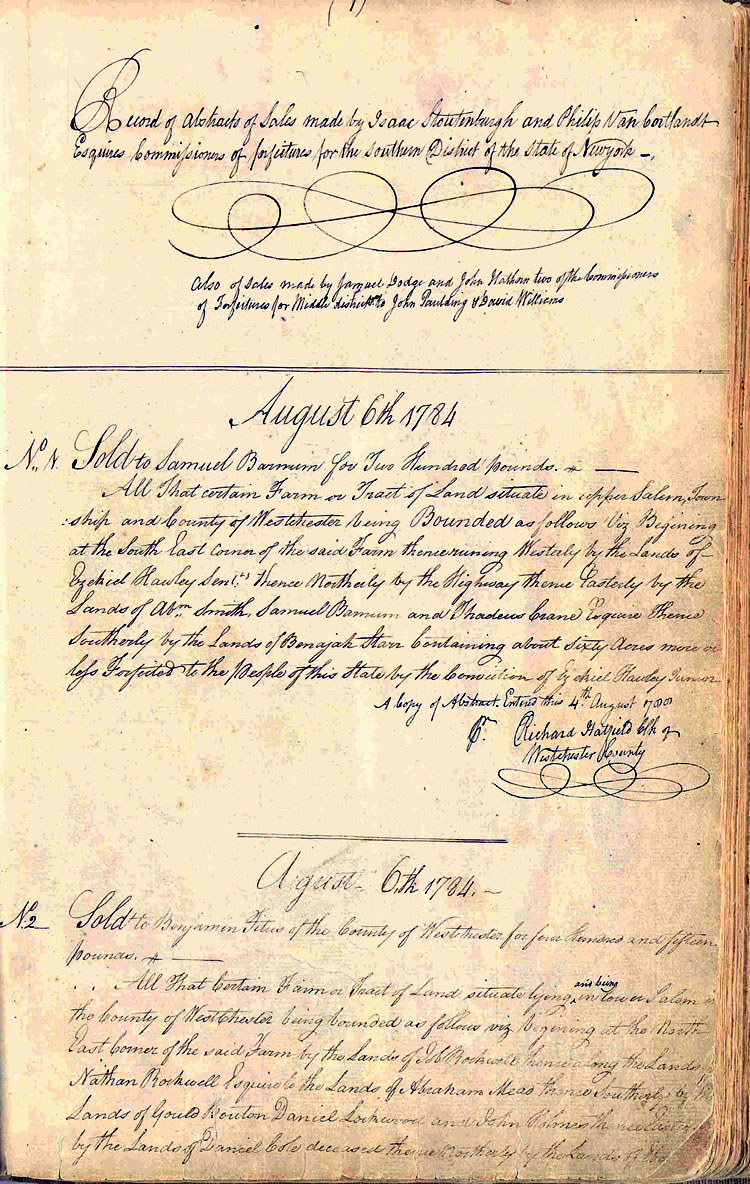 (1)
Record of Abstracts of Sales made by Isaac Stoutenburgh and Philip Van Cortlandt
Esquires Commissioners of forfeitures for the Southern District of the State of Newyork —.
Also of Sales made by Samuel Dodge and John Hathorn two of the Commissioners
of Forfeitures for Middle district to John Paulding & David Williams
August 6th 1784
No. 1. Sold to Samuel Barnum for Two Hundred pounds. —
All That certain Farm or Tract of Land situate in upper Salem, Town
:ship and County of Westchester being Bounded as follows Viz Begining
at the South East corner of the said Farm thence runing Westerly by the Lands of
Ezekiel Hawley Senr. thence Northerly by the Highway thence Easterly by the
Lands of Abm. Smith, Samuel Barnum and Thadeus Crane Esquire Thence
Southerly by the Lands of Benajah Starr Containing about Sixty Acres more or
less Forfeited to the People of this State by the Conviction of Ezekiel Hawley Junior
A Copy of Abstract. Entered this 4th August 1788
Pr. Richard Hatfield Clk of
Westchester County
August 6th 1784. —
No 2 Sold to Benjamin Titus of the County of Westchester for four Hundred and fifteen
pounds. —
All That Certain Farm or Tract of Land situate lying and being in lower Salem in
the County of WestChester being bounded as follows viz begining at the North
East Corner of the said Farm by the Lands of Job Rockwell thence along the Lands
Nathan Rockwell Esquire to the Lands of Abraham Mead thence Southerly by the
Lands of Gould Bouton Daniel Lockwood and John Holmes thence Easterly
by the Lands of Daniel Cole deceased thence Northerly by the Lands of